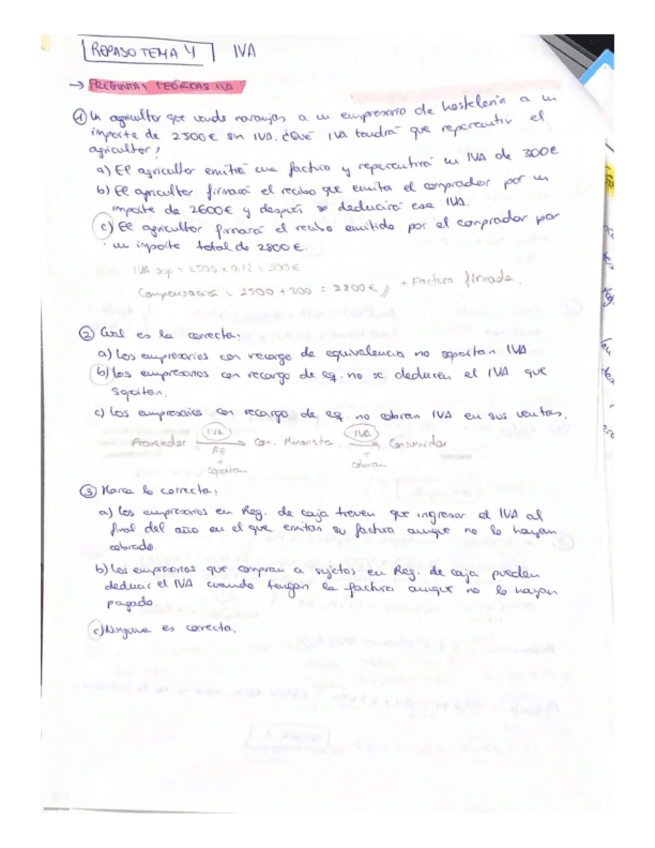 REPASO TEMA 4 IVA
→ PREGUNTAS TEÓRICAS IVA
① Un agricultor que vende naranjas a un empresario de hostelería a un
importe de 2500€ sin IVA. ¿Qué IVA tendrá que repercutir el
agricultor?
a) El agricultor emitirá una factura y repercutirá un IVA de 300€
b) El agricultor firmará el recibo que emita el comprador por un
importe de 2600€ y después se deducirá ese IVA.
c) El agricultor firmará el recibo emitido por el comprador por
un importe total de 2800€.
IVA sop = 2500 x 0,12 = 300€
Compensación = 2500 + 300 = 2800€ // + Factura firmada.
② Cuál es la correcta:
a) Los empresarios con recargo de equivalencia no soportan IVA
b) Los empresarios con recargo de eq. no se deducen el IVA que
soportan.
c) Los empresarios con recargo de eq. no cobran IVA en sus ventas.
Proveedor IVA → Com. Minorista IVA → Consumidor
RE
soportan cobran
③ Marca lo correcta:
a) Los empresarios en Reg. de caja tienen que ingresar el IVA al
final del año en el que emitan su factura aunque no lo hayan
cobrado.
b) Los empresarios que compran a sujetos en Reg. de caja pueden
deducir el IVA cuando tengan la factura aunque no lo hayan
pagado.
c) Ninguna es correcta.